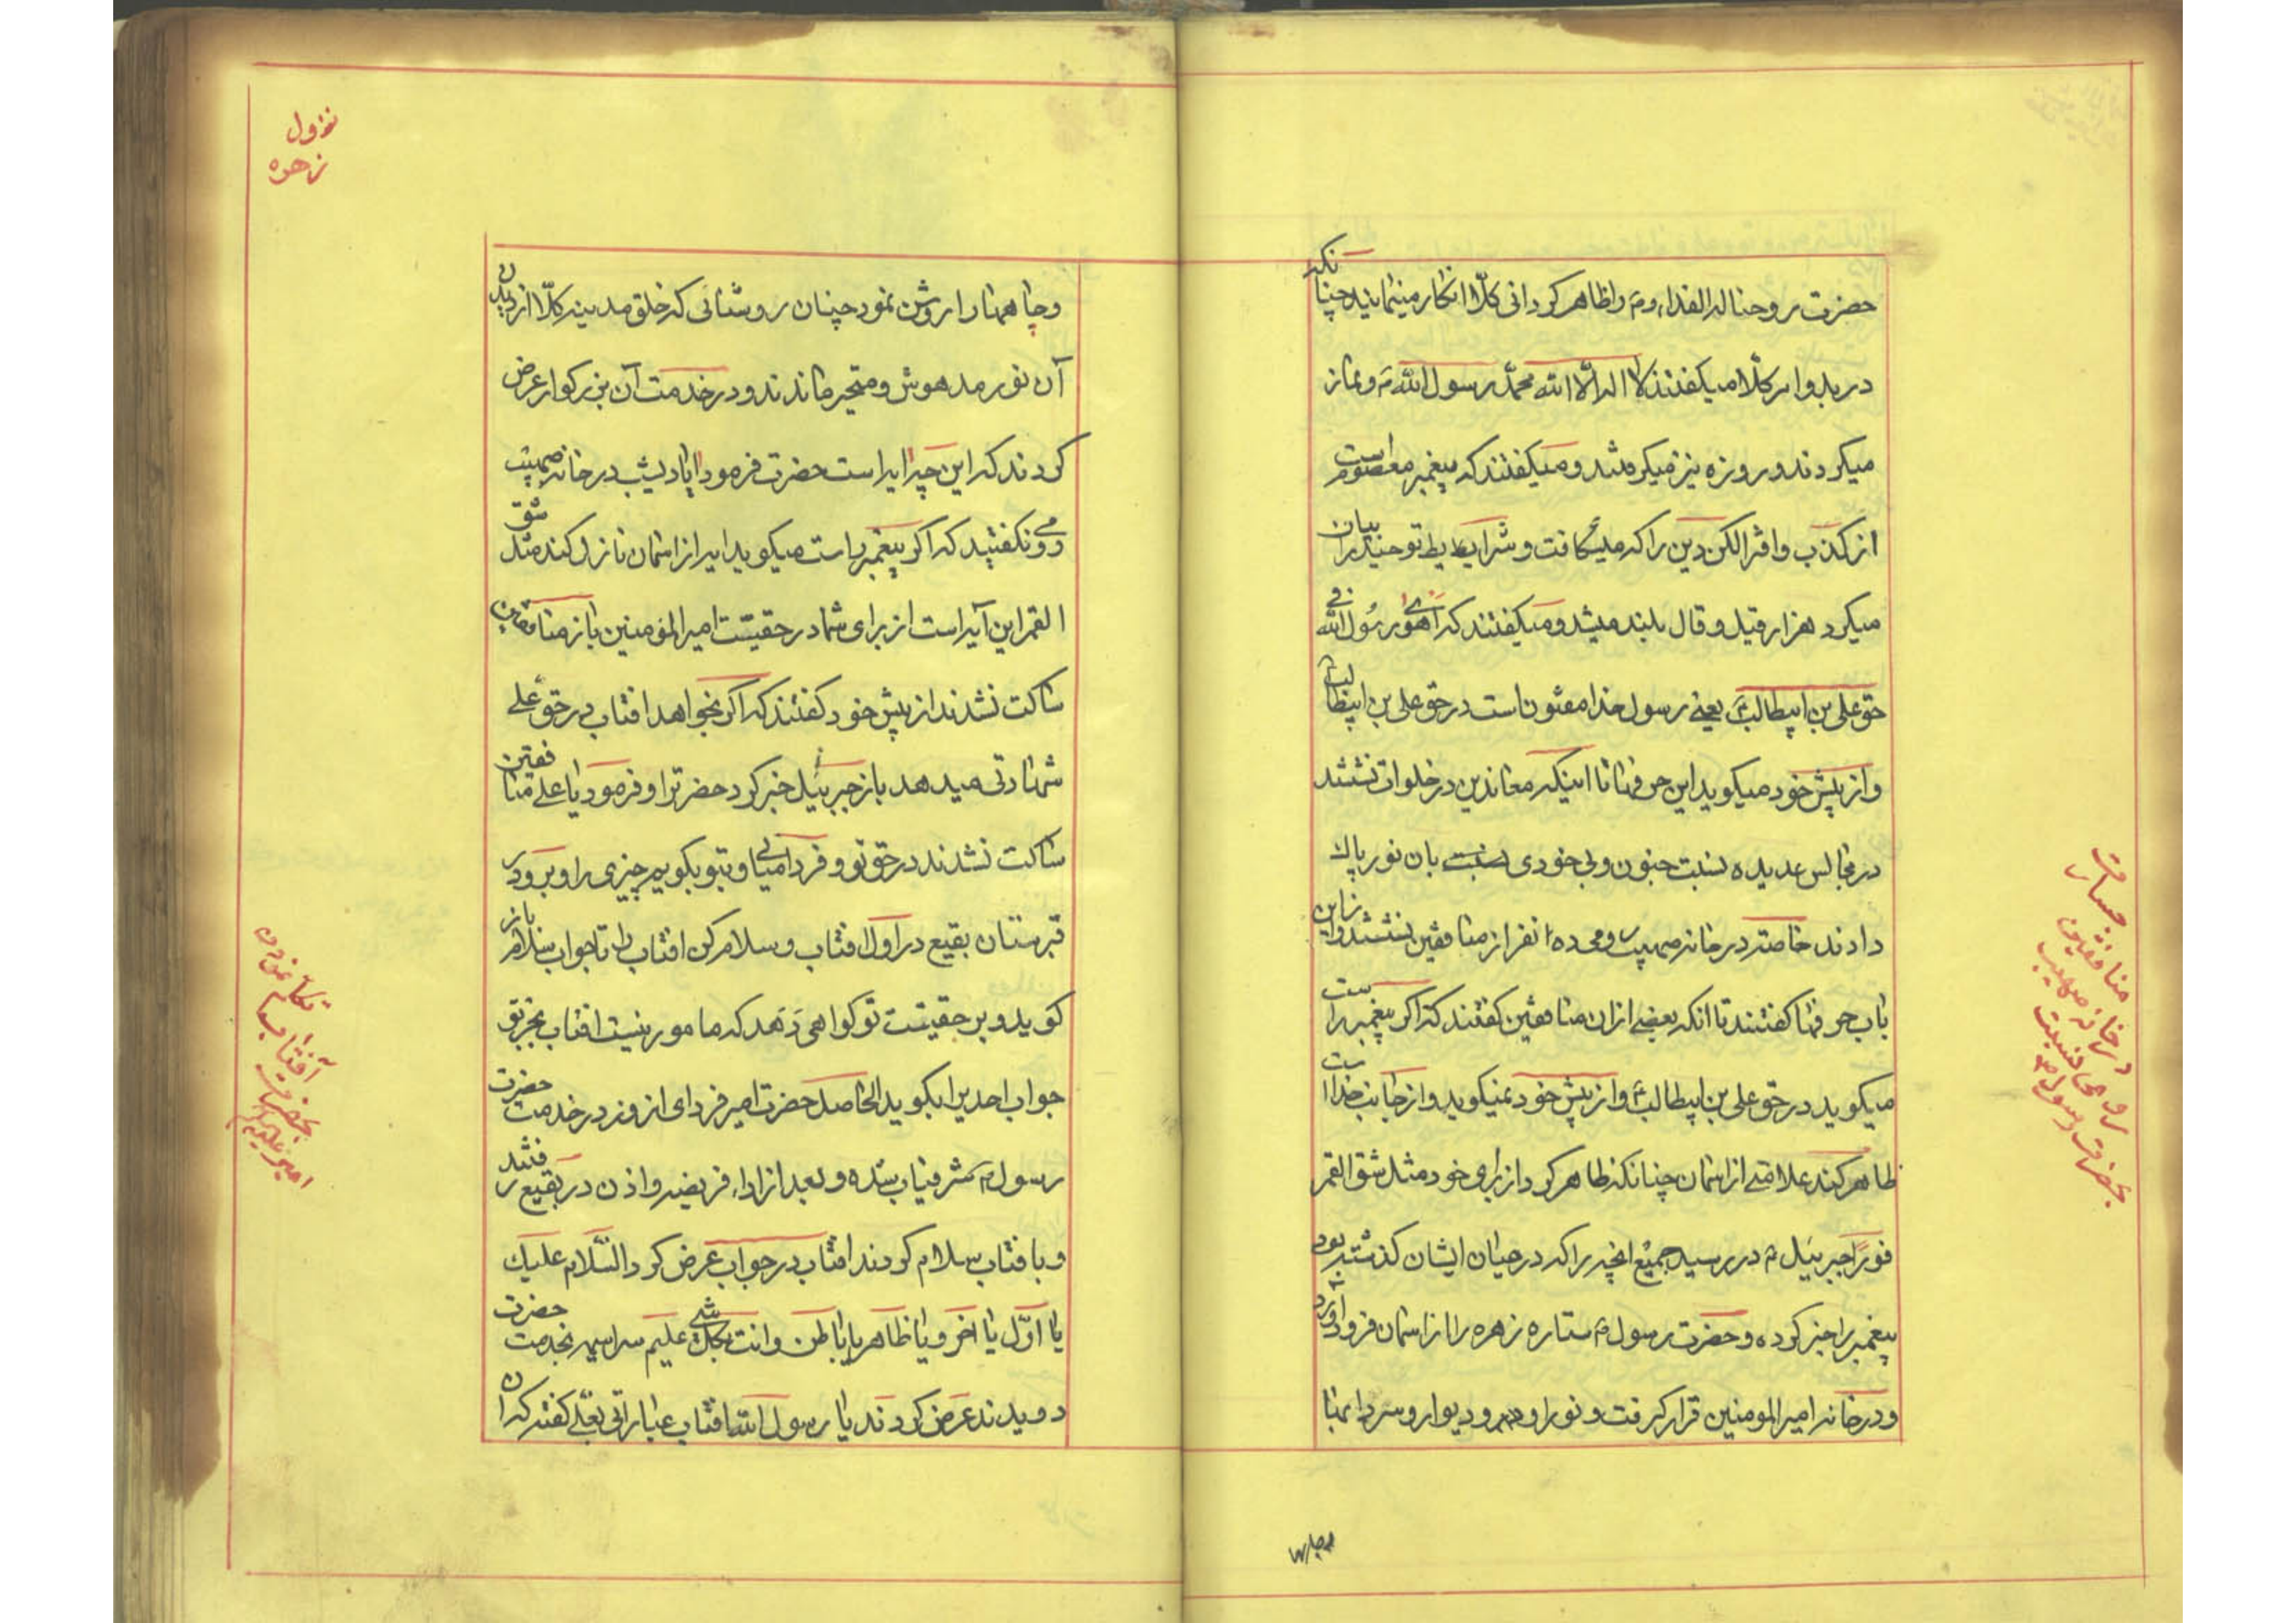 حضرت روحنا له الفداء و م و اظاهر کردانی کلّا انکار مینمایند چنانکه
در بدو امر کلّا میکفتند لا اله الّا الله محمّد رسول الله ص و نماز
میکردند و روزه نیز میکرفتند و میکفتند که پیغمبر معصوم است
از کذب و افترا لکن دین را که میشکافت و شرایط توحید را بیان
میکرد هزار قیل و قال بلند میشد و میکفتند که اهوی رسول الله فی
حق علی بن ابیطالب یعنی رسول خدا مفتون است در حق علی بن ابیطالب
و از پیش خود میکوید این حرفها تا اینکه معاندین در خلوات نشستند
در مجالس عدیده نسبت جنون و بی خودی بان نور پاک
دادند خاصّة در خانه صهیب رومی ده انفر از منافقین نشستند و از این
باب حرفها کفتند تا انکه بعضی ازان منافقین کفتند که اکر پیغمبر راست
میکوید در حق علی بن ابیطالب و از پیش خود نمیکوید و از جانب خدا است
ظاهر کند علامتی از اسمان چنانکه ظاهر کرد از برای خود مثل شق القمر
فوراً جبرئیل در رسید جمیع انچه را که در میان ایشان کذشته بود
پیغمبر را خبر کرده و حضرت رسول ستاره زهره را از اسمان فرود آورد
و در خانه امیر المومنین قرار کرفت و نور او در و دیوار و سردابها
منافقین جسارت
در خانه صهیب
رومی نسبت
بحضرت رسول ص
نزول
زهره
و چاهها را روشن نمود چنان روشنائی که خلق مدینه کلّا از دیدن
آن نور مدهوش و متحیر ماندند و در خدمت آن بزرکوار عرض
کردند که این چه ایه است حضرت فرمود ایا دیشب در خانه صهیب
رومی نکفتید که اکر پیغمبر راست میکوید ایه از اسمان نازل کند مثل شق
القمر این آیه است از برای شما در حقیّت امیر المؤمنین باز منافقین
ساکت نشدند از پیش خود کفتند که اکر بخواهد افتاب در حق علی
شهادتی میدهد باز جبرئیل خبر کرد حضرت را و فرمود یا علی منافقین
ساکت نشدند در حق تو و فردا میائی و بتو بکویم چیزی را و برو در
قبرستان بقیع در اول افتاب و سلام کن افتاب را تا جواب سلام باز
کوید و بر حقیّت تو کواهی دهد که مامور نیست افتاب بجز تو
جواب احدیرا بکوید الحاصل حضرت امیر فردای انروز در خدمت حضرت
رسول مشرفیاب شده و بعد از اداء فریضه و اذن در بقیع رفتند
و بافتاب سلام کردند افتاب در جواب عرض کرد السّلام علیک
یا اوّل یا اخر و یا ظاهر یا باطن و انت بکل شیء علیم سراسیمه بخدمت حضرت
دویدند عرض کردند یا رسول الله افتاب عباراتی بعلی کفته که ان
تکلّم نمودن
آفتاب
بحضرت
امیر علیه السلام